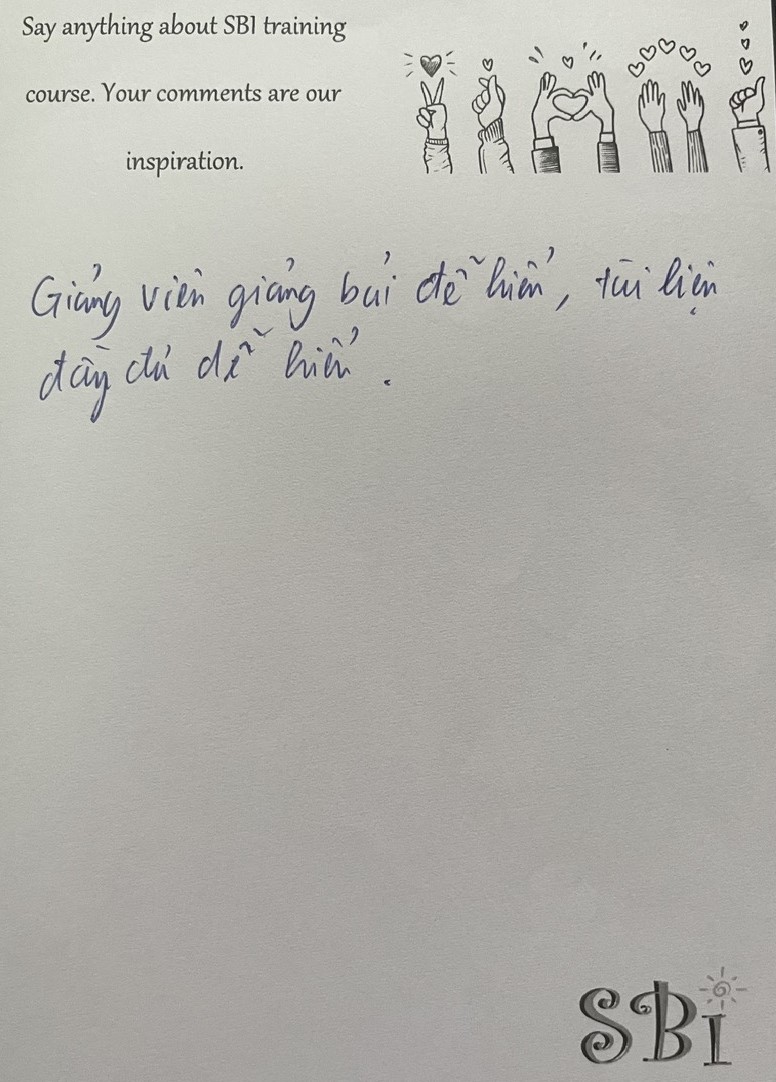 Say anything about SBI training
course. Your comments are our
inspiration.
Giảng viên giảng bài dễ hiểu, tài liệu
đầy đủ dễ hiểu.
SBI